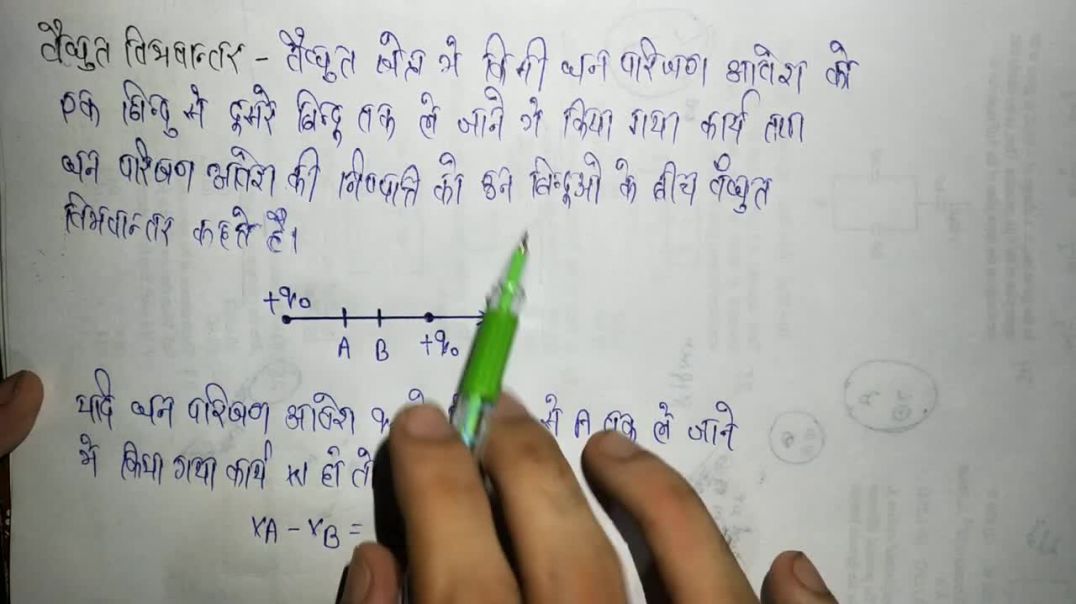 वैद्युत विभवान्तर - वैद्युत क्षेत्र में किसी धन परिक्षण आवेश को
एक बिन्दु से दूसरे बिन्दु तक ले जाने में किया गया कार्य तथा
धन परिक्षण आवेश की निष्पत्ति को उन बिन्दुओ के बीच वैद्युत
विभवान्तर कहते है।
+q₀
A B +q₀
यदि धन परिक्षण आवेश से A तक ले जाने
में किया गया कार्य W हो तो
VA - VB =